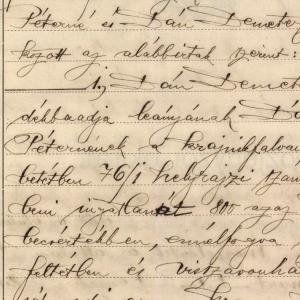 Péterné és Dán Demeter
között az alábbirtak szerint:
1, Dán Demet
dékbaadja leányának Dá
Péternének a krajnikfalva
betétben 76/1 helyrajzi szám
beni ingatlanát 800 azaz
becsértékben, ennélfogva
feltétben és visszavonha